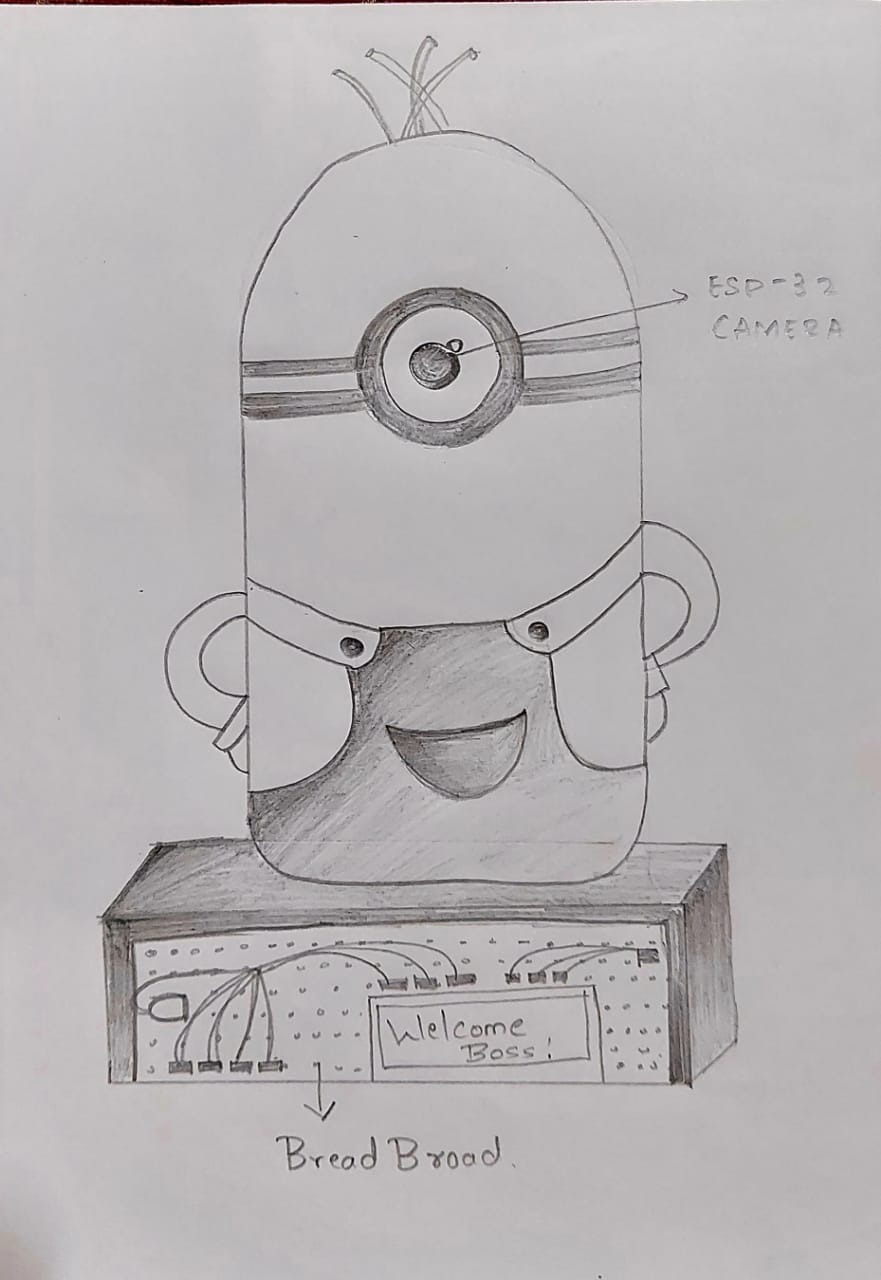 ESP-32
CAMERA
Welcome
Boss!
Bread Broad.